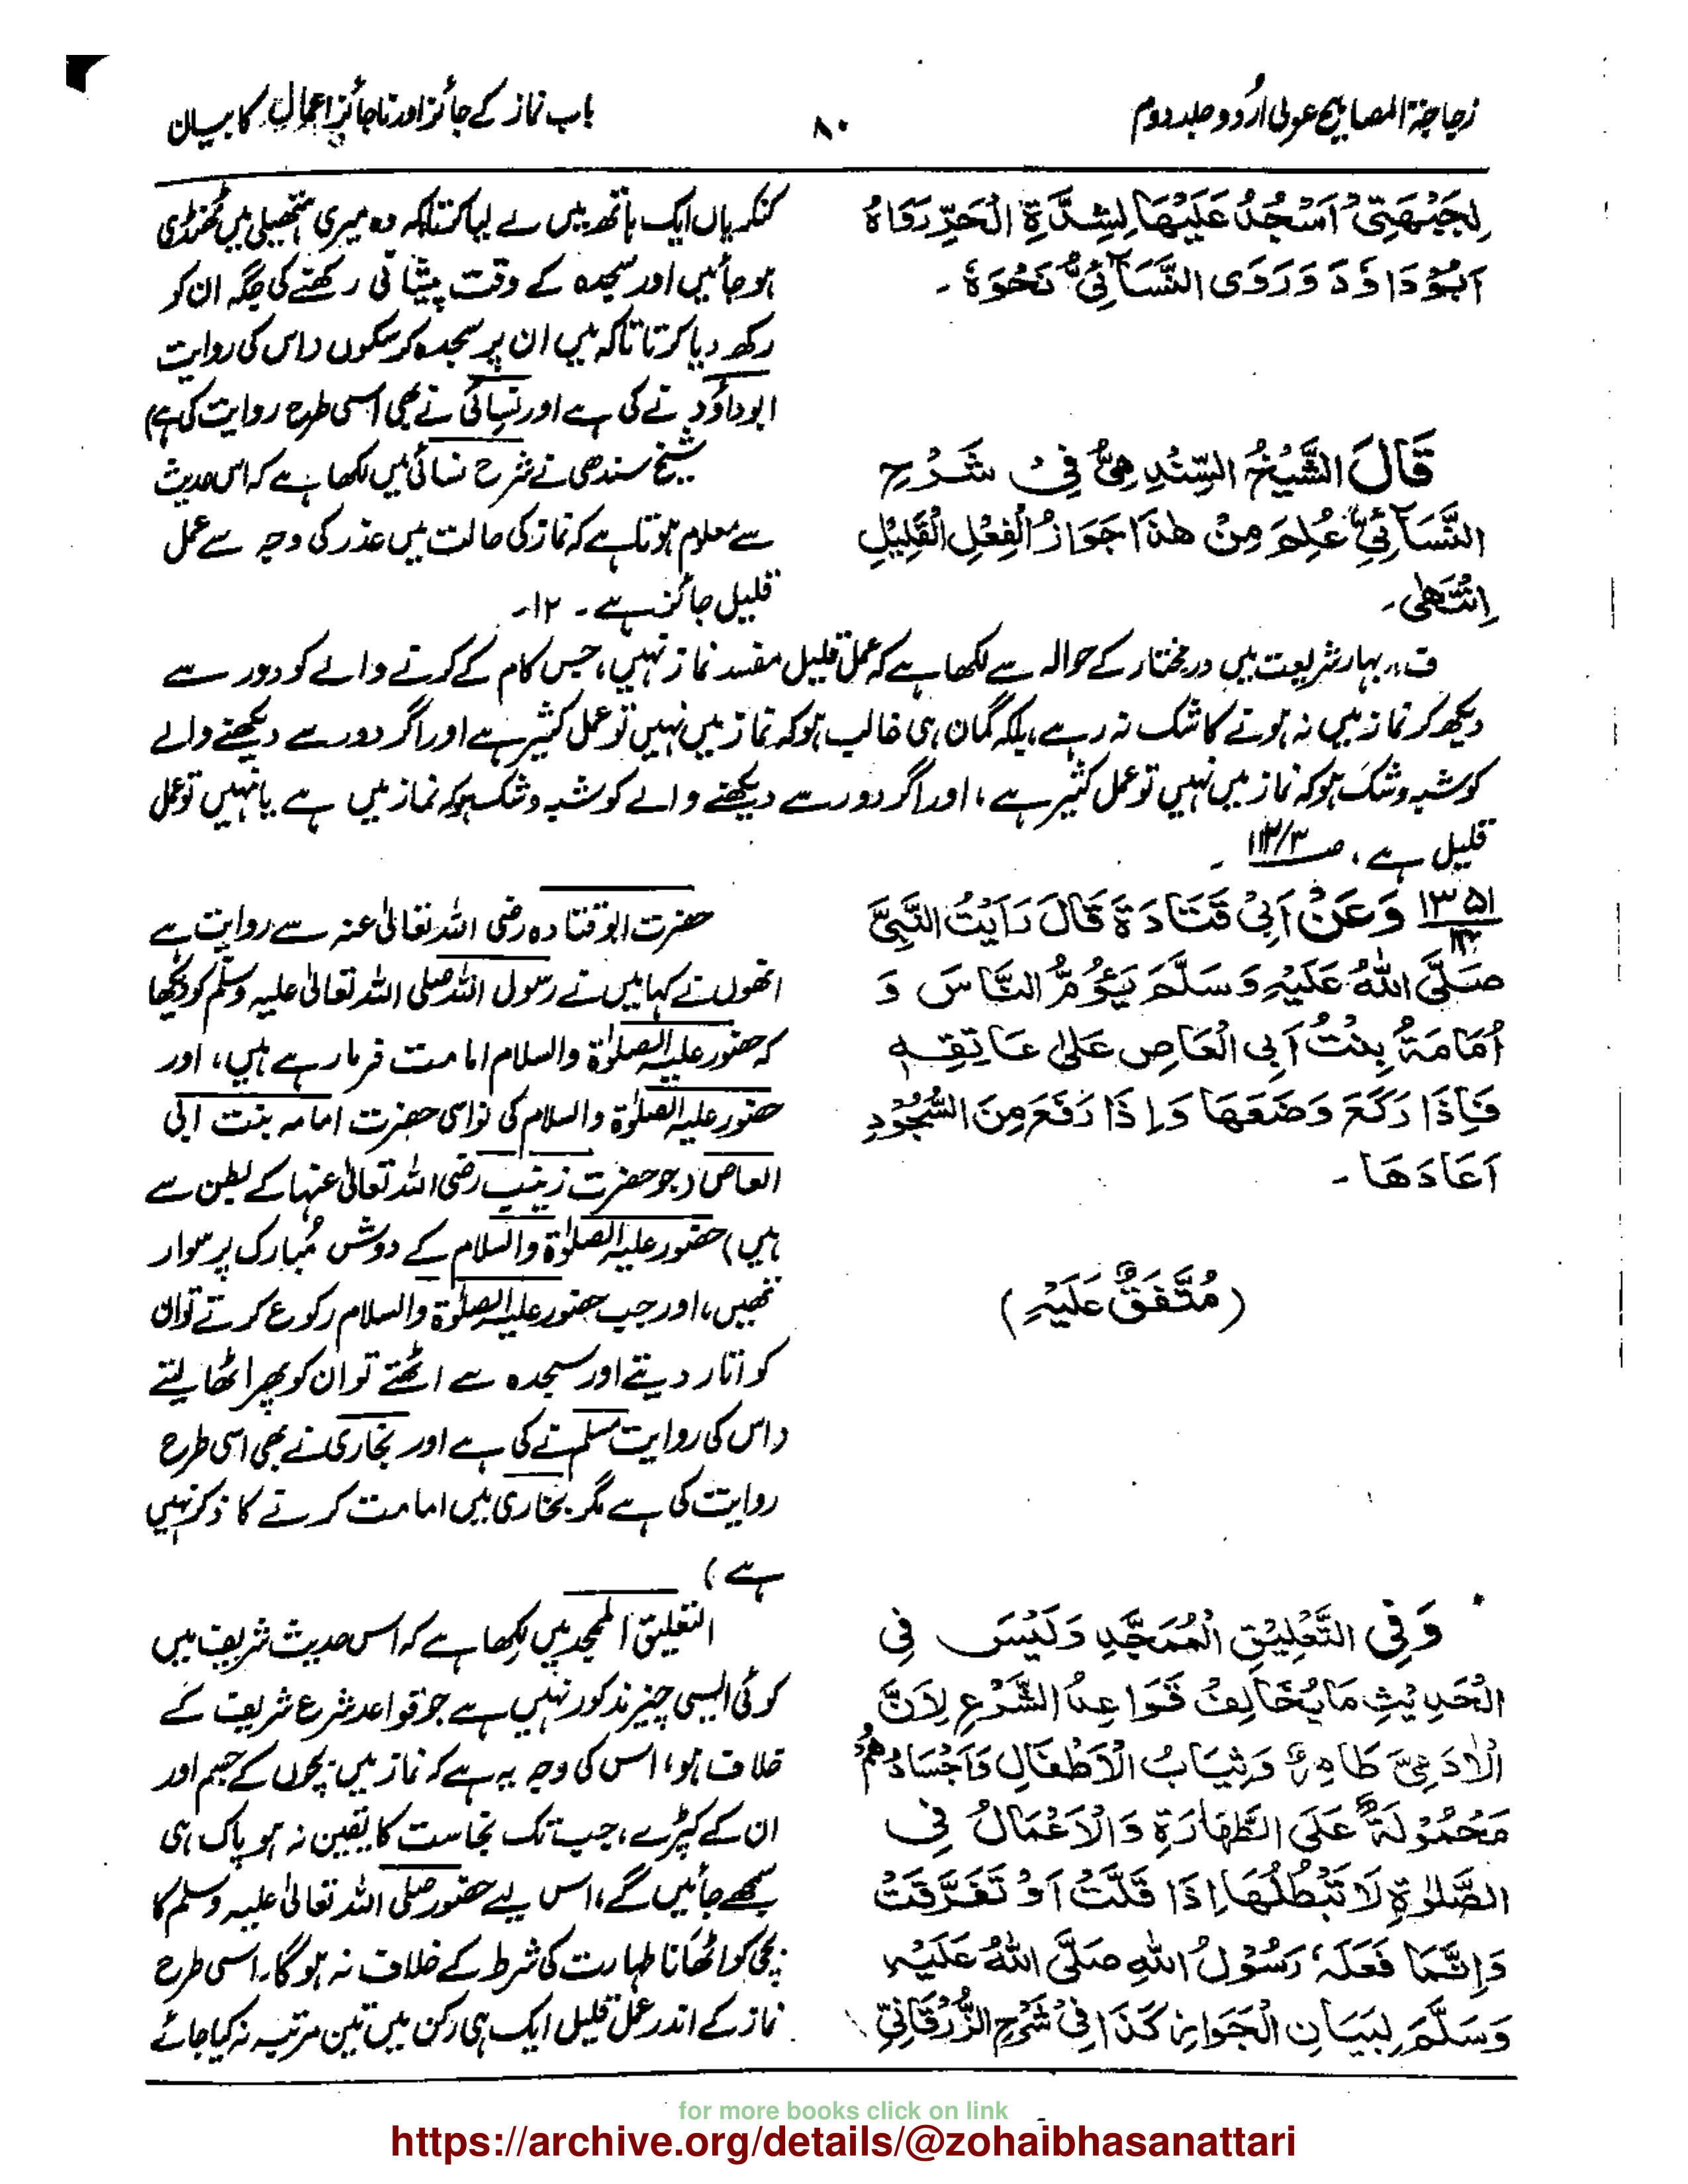 زجاجۃ المصابیح عربی اُردو جلد دوم
۸۰
باب نماز کے جائز اور ناجائز اعمال کا بیان
لِجَبْهَتِيْ اَسْجُدُ عَلَيْهَا لِشِدَّةِ الْحَرِّ رَوَاهُ
اَبُوْدَاؤُدَ وَرَوَى النَّسَآئِيُّ نَحْوَهٗ ۔
قَالَ الشَّيْخُ السِّنْدِهِيُّ فِيْ شَرْحِ
النَّسَآئِيِّ عُلِمَ مِنْ هٰذَا جَوَازُ الْفِعْلِ الْقَلِيْلِ
اِنْتَهٰى۔
کنکریاں ایک ہاتھ میں لے لیا کرتا کہ وہ میری ہتھیلی میں ٹھنڈی
ہو جائیں اور سجدہ کے وقت پیشانی رکھنے کی جگہ ان کو
رکھ دیا کرتا تاکہ میں ان پر سجدہ کر سکوں (اس کی روایت
ابوداؤد نے کی ہے اور نسائی نے بھی اسی طرح روایت کی ہے)
شیخ سندھی نے شرح نسائی میں لکھا ہے کہ اس حدیث
سے معلوم ہوتا ہے کہ نماز کی حالت میں عذر کی وجہ سے عمل
قلیل جائز ہے ۔ ۱۲۔
ف:۔ بہار شریعت میں درمختار کے حوالہ سے لکھا ہے کہ عمل قلیل مفسد نماز نہیں، جس کام کے کرنے والے کو دور سے
دیکھ کر نماز میں نہ ہونے کا شک نہ رہے، بلکہ گمان ہی غالب ہو کہ نماز میں نہیں تو عمل کثیر ہے اور اگر دور سے دیکھنے والے
کو شبہ و شک ہو کہ نماز میں نہیں تو عمل کثیر ہے، اور اگر دور سے دیکھنے والے کو شبہ و شک ہو کہ نماز میں ہے یا نہیں تو عمل
قلیل ہے، صـ ۱۱۲/۳ ۔
۱۳۵۱ وَعَنْ اَبِيْ قَتَادَةَ قَالَ رَاَيْتُ النَّبِيَّ
صَلَّى اللهُ عَلَيْهِ وَسَلَّمَ يَؤُمُّ النَّاسَ وَ
اُمَامَةُ بِنْتُ اَبِي الْعَاصِ عَلٰى عَاتِقِهٖ
فَاِذَا رَكَعَ وَضَعَهَا وَاِذَا رَفَعَ مِنَ السُّجُوْدِ
اَعَادَهَا ۔
(مُتَّفَقٌ عَلَيْهِ)
حضرت ابوقتادہ رضی اللہ تعالیٰ عنہ سے روایت ہے
انھوں نے کہا میں نے رسول اللہ صلی اللہ تعالیٰ علیہ وسلم کو دیکھا
کہ حضور علیہ الصلوٰۃ والسلام امامت فرما رہے ہیں، اور
حضور علیہ الصلوٰۃ والسلام کی نواسی حضرت امامہ بنت ابی
العاص (جو حضرت زینب رضی اللہ تعالیٰ عنہا کے بطن سے
ہیں) حضور علیہ الصلوٰۃ والسلام کے دوش مُبارک پر سوار
تھیں، اور جب حضور علیہ الصلوٰۃ والسلام رکوع کرتے تو ان
کو اتار دیتے اور سجدہ سے اٹھتے تو ان کو پھر اٹھا لیتے
(اس کی روایت مسلم نے کی ہے اور بخاری نے بھی اسی طرح
روایت کی ہے مگر بخاری میں امامت کرنے کا ذکر نہیں
ہے)
وَفِي التَّعْلِيْقِ الْمُمَجَّدِ وَلَيْسَ فِي
الْحَدِيْثِ مَا يُخَالِفُ قَوَاعِدَ الشَّرْعِ لِاَنَّ
الْاٰدَمِيَّ طَاهِرٌ وَثِيَابُ الْاَطْفَالِ وَاَجْسَادُهُمْ
مَحْمُوْلَةٌ عَلَى الطَّهَارَةِ وَالْاَعْمَالُ فِي
الصَّلٰوةِ لَا تُبْطِلُهَا اِذَا قَلَّتْ اَوْ تَفَرَّقَتْ
وَاِنَّمَا فَعَلَهٗ رَسُوْلُ اللهِ صَلَّى اللهُ عَلَيْهِ
وَسَلَّمَ لِبَيَانِ الْجَوَازِ كَذَا فِيْ شَرْحِ الزُّرْقَانِيِّ
التعلیق الممجد میں لکھا ہے کہ اس حدیث شریف میں
کوئی ایسی چیز مذکور نہیں ہے جو قواعد شرع شریف کے
خلاف ہو، اس کی وجہ یہ ہے کہ نماز میں بچوں کے جسم اور
ان کے کپڑے، جب تک نجاست کا یقین نہ ہو پاک ہی
سمجھے جائیں گے، اس لیے حضور صلی اللہ تعالیٰ علیہ وسلم کا
بچی کو اٹھانا طہارت کی شرط کے خلاف نہ ہوگا۔ اسی طرح
نماز کے اندر عمل قلیل ایک ہی رکن میں تین مرتبہ نہ کیا جائے
for more books click on link
https://archive.org/details/@zohaibhasanattari